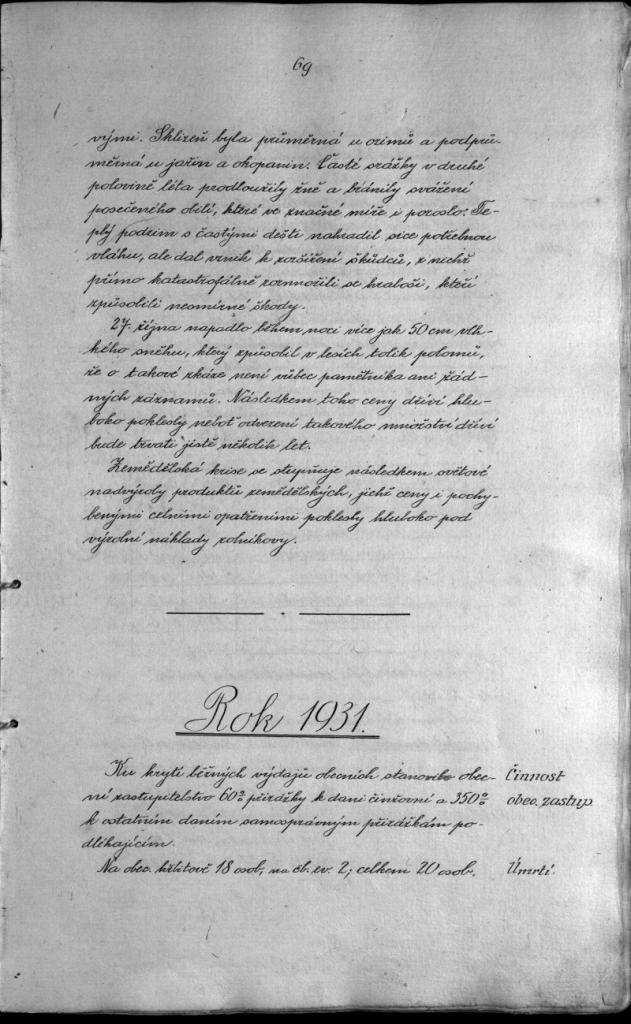 69
vými. Sklizeň byla průměrná u ozimů a podprů-
měrná u jařin a okopanin. Časté srážky v druhé
polovině léta prodloužily žně a bránily svážení
posečeného obilí, které ve značné míře i porostlo. Te-
plý podzim s častými dešti nahradil sice potřebnou
vláhu, ale dal vznik k rozšíření škůdců, z nichž
přímo katastrofálně rozmnožili se hraboši, kteří
způsobili nesmírné škody.
27. října napadlo během noci více jak 50 cm vlh-
kého sněhu, který způsobil v lesích tolik polomů,
že o takové zkáze není vůbec pamětníka ani žád-
ných záznamů. Následkem toho ceny dříví hlu-
boko poklesly neboť odvezení takového množství dříví
bude trvati jistě několik let.
Zemědělská krise se stupňuje následkem světové
nadvýroby produktů zemědělských, jichž ceny i pochy-
benými celními opatřeními poklesly hluboko pod
výrobní náklady rolníkovy.
Rok 1931.
Ku krytí běžných výdajů obecních stanovilo obec- Činnost
ní zastupitelstvo 60% přirážky k dani činžovní a 350% obec. zastup.
k ostatním daním samosprávným přirážkám po-
dléhajícím.
Na obec. hřbitově 18 osob, na čb. ev. 2; celkem 20 osob. Úmrtí.